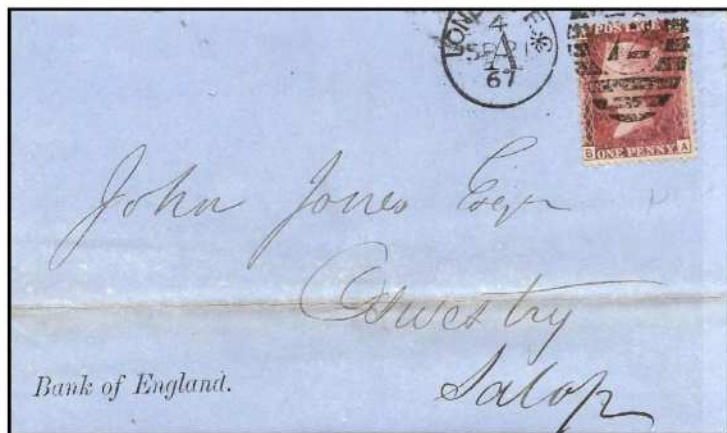 LONDON E.C
4
A
SP 21
67
POSTAGE
12
B ONE PENNY A
John Jones Esqre
Oswestry
Salop
Bank of England.